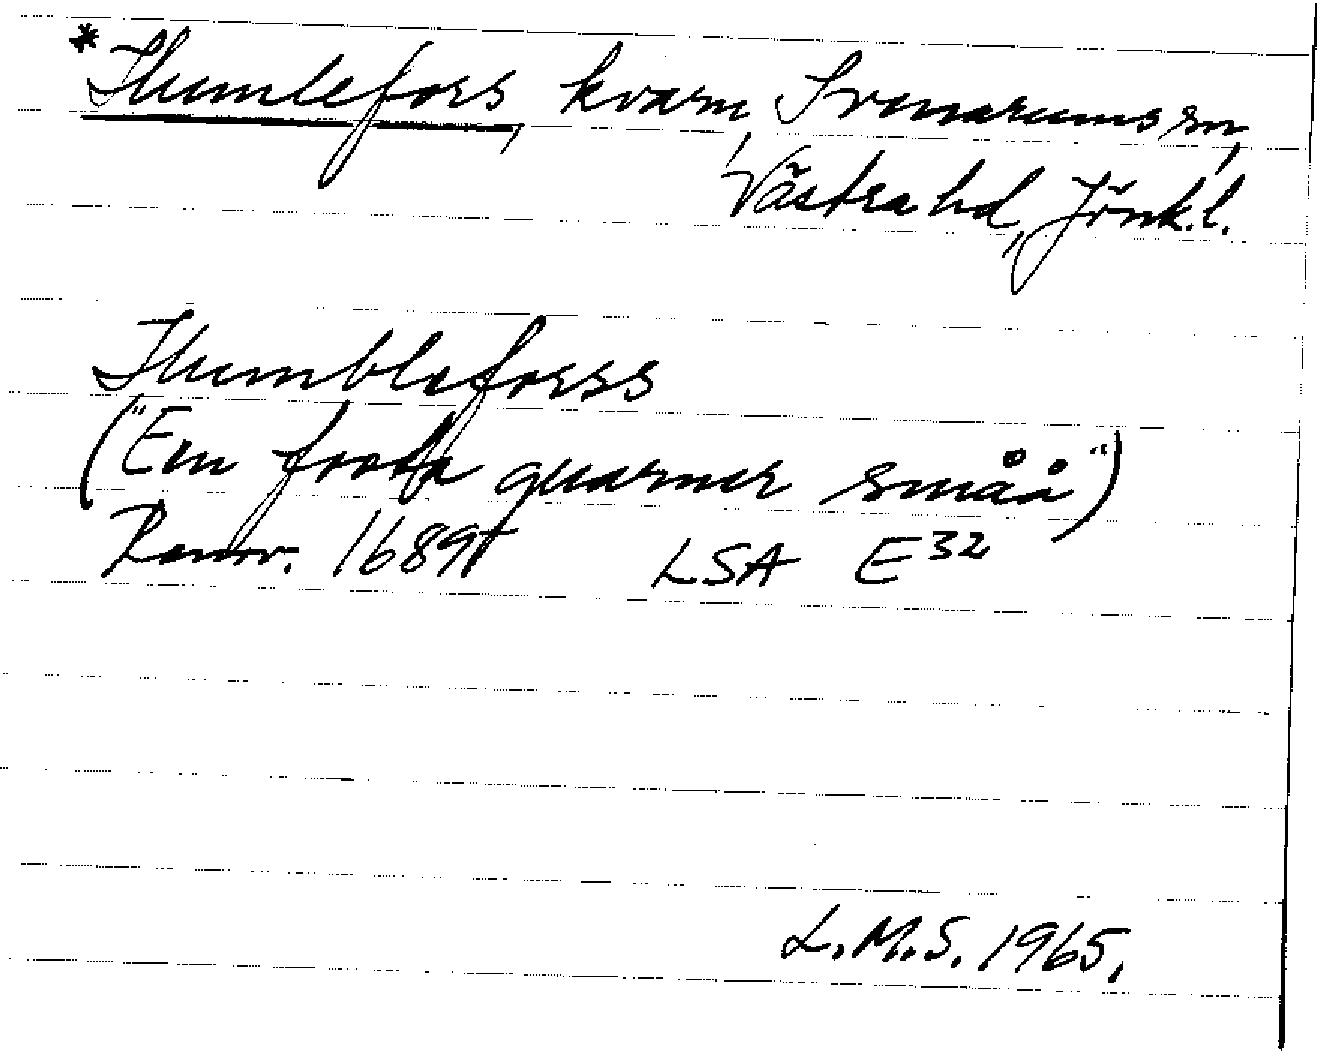 *Humlefors, kvarn, Svenarums sn,
Västra hd, Jönk.l.
Humbleforss
("Een foota quarner småå")
Renov. 1689
LSA E32
L.M.S. 1965.